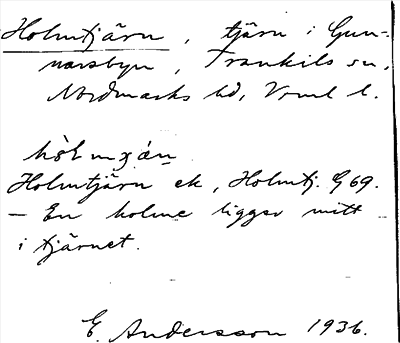 Holmtjärn, tjärn i Gun-
narsbyn, Trankils sn,
Nordmarks hd, Vrml l.
Holmtjärn ek, Holmtj. G 69.
– En holme ligger mitt
i tjärnet.
E. Andersson 1936.